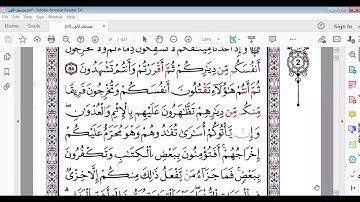 مصحف قالون.pdf - Adobe Acrobat Reader DC
وَإِذْ أَخَذْنَا مِيثَٰقَكُمْ لَا تَسْفِكُونَ دِمَآءَكُمْ وَلَا تُخْرِجُونَ
أَنفُسَكُم مِّن دِيَٰرِكُمْ ثُمَّ أَقْرَرْتُمْ وَأَنتُمْ تَشْهَدُونَ
ثُمَّ أَنتُمْ هَٰٓؤُلَآءِ تَقْتُلُونَ أَنفُسَكُمْ وَتُخْرِجُونَ فَرِيقًا
مِّنكُم مِّن دِيَٰرِهِمْ تَظَّٰهَرُونَ عَلَيْهِم بِالْإِثْمِ وَالْعُدْوَٰنِ
وَإِن يَأْتُوكُمْ أُسَٰرَىٰ تُفَٰدُوهُمْ وَهْوَ مُحَرَّمٌ عَلَيْكُمْ
إِخْرَاجُهُمْ أَفَتُؤْمِنُونَ بِبَعْضِ الْكِتَٰبِ وَتَكْفُرُونَ
بِبَعْضٍ فَمَا جَزَآءُ مَن يَفْعَلُ ذَٰلِكَ مِنكُمْ إِلَّا خِزْيٌ